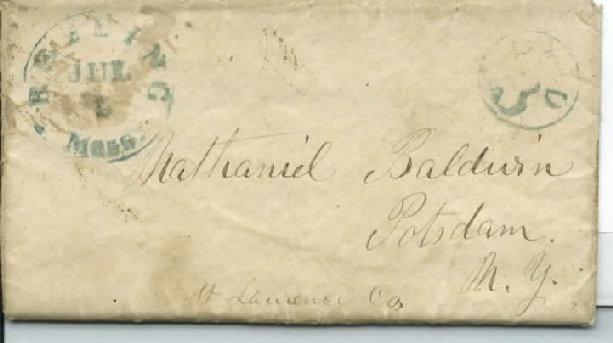 READING
JUL
Mass.
5
Nathaniel Baldwin
Potsdam.
N. Y.
St Lawrence Co,